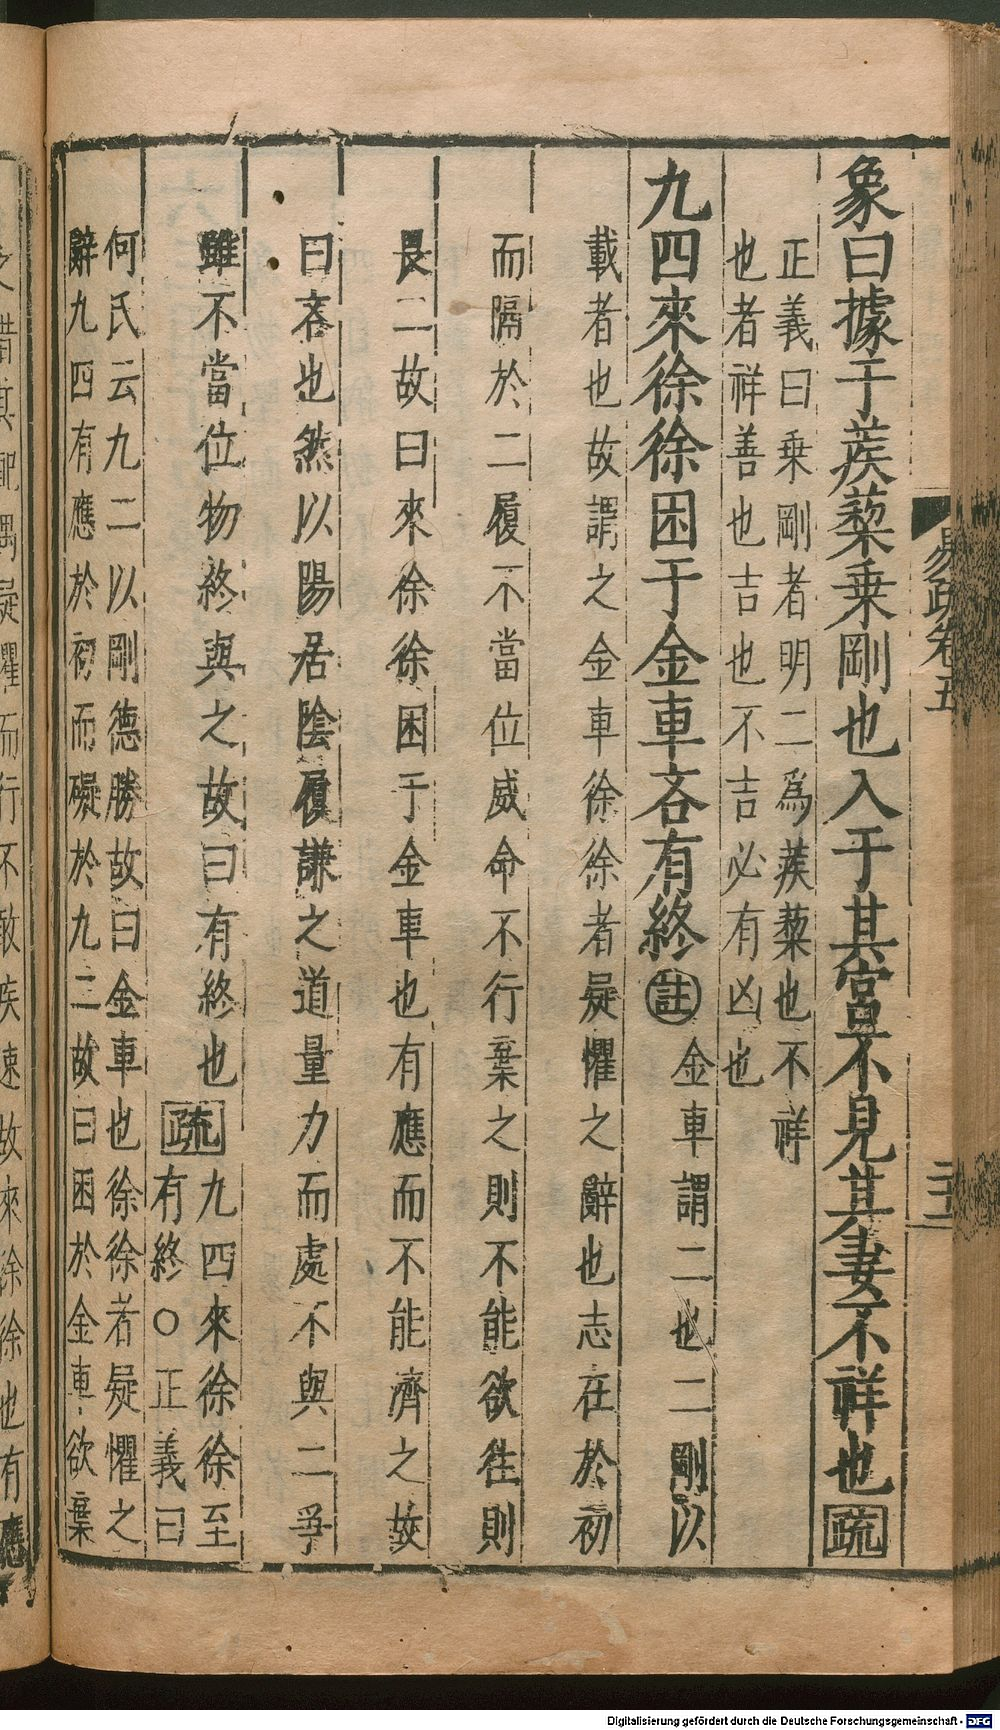 易疏卷五
象曰據于蒺蔾乗剛也入于其宮不見其妻不祥也疏
正義曰乗剛者明二爲蒺蔾也不祥
也者祥善也吉也不吉必有凶也
九四來徐徐困于金車吝有終註金車謂二也二剛以
載者也故謂之金車徐徐者疑懼之辭也志在於初
而隔於二履不當位威命不行棄之則不能欲徃則
畏二故曰來徐徐困于金車也有應而不能濟之故
曰吝也然以陽居陰履謙之道量力而處不與二爭
雖不當位物終與之故曰有終也疏九四來徐徐至
有終○正義曰
何氏云九二以剛德勝故曰金車也徐徐者疑懼之
辭九四有應於初而礙於九二故曰困於金車欲棄
之惜其配偶疑懼而行不敢疾速故來徐徐也有應
Digitalisierung gefördert durch die Deutsche Forschungsgemeinschaft - DFG